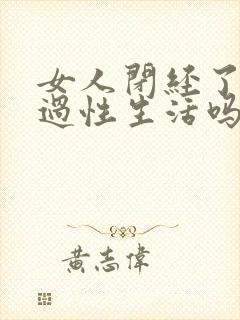 女人閉経了
過性生活吗
黃志偉